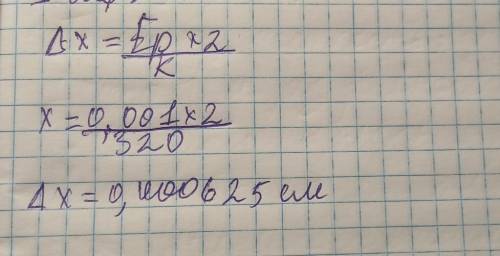 Δx = Ep × 2
K
x = 0,001 × 2
320
Δx = 0,00000625 см